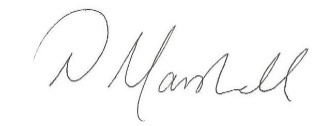 D Marshall